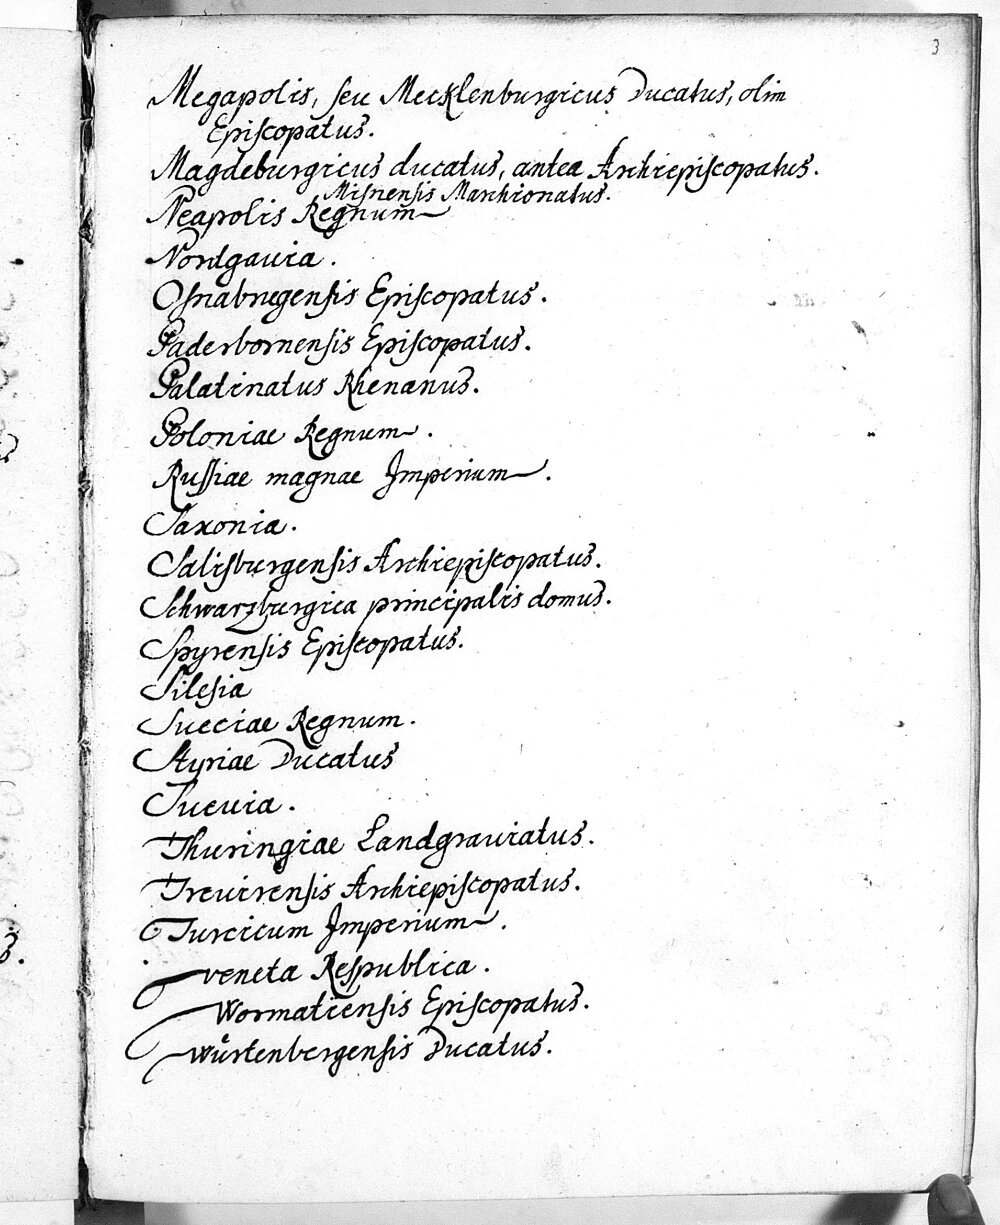 3
Megapolis, seu Mecklenburgicus Ducatus, olim
Episcopatus.
Magdeburgicus ducatus, antea Archiepiscopatus.
Misnensis Marchionatus.
Neapolis Regnum
Nordgauia.
Osnabrugensis Episcopatus.
Paderbornensis Episcopatus.
Palatinatus Rhenanus.
Poloniae Regnum.
Russiae magnae Imperium.
Saxonia.
Salisburgensis Archiepiscopatus.
Schwarzburgica principalis domus.
Spyrensis Episcopatus.
Silesia
Sueciae Regnum.
Styriae Ducatus
Sueuia.
Thuringiae Landgrauiatus.
Treuirensis Archiepiscopatus.
Turcicum Imperium.
veneta Respublica.
Wormatiensis Episcopatus.
würtenbergensis Ducatus.